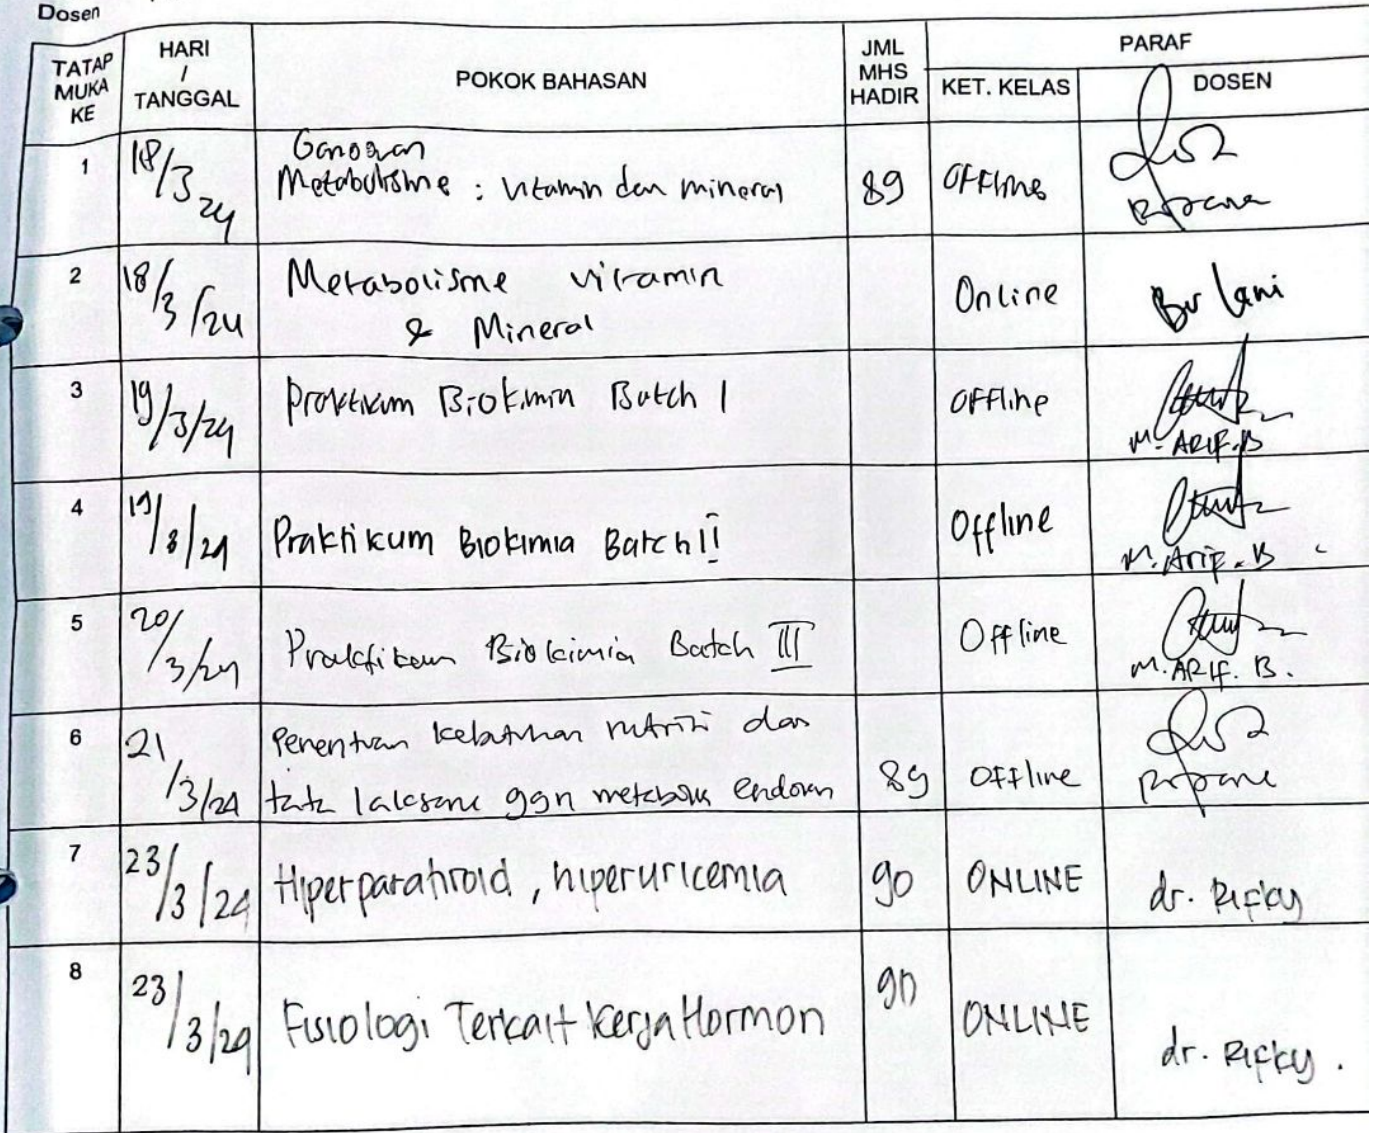 Dosen
TATAP MUKA KE
HARI / TANGGAL
POKOK BAHASAN
JML MHS HADIR
PARAF
KET. KELAS
DOSEN
1 18/3 24 Metabolisme : vitamin dan mineral 89 Offline
2 18/3/24 Metabolisme vitamin Online Bu Lani
& Mineral
3 19/3/24 Praktikum Biokimia Batch I Offline
M. ARIF. B
4 19/3/24 Praktikum Biokimia Batch II Offline
M. Arif. B
5 20/3/24 Praktikum Biokimia Batch III Offline
M. ARIF. B.
6 21/3/24 Penentuan kebutuhan nutrisi dan
tata laksana ggn metabolik endokrin 89 Offline
7 23/3/24 Hiperparatiroid, hiperuricemia 90 ONLINE dr. Rifky
8 23/3/24 Fisiologi Terkait Kerja Hormon 90 ONLINE dr. Rifky.